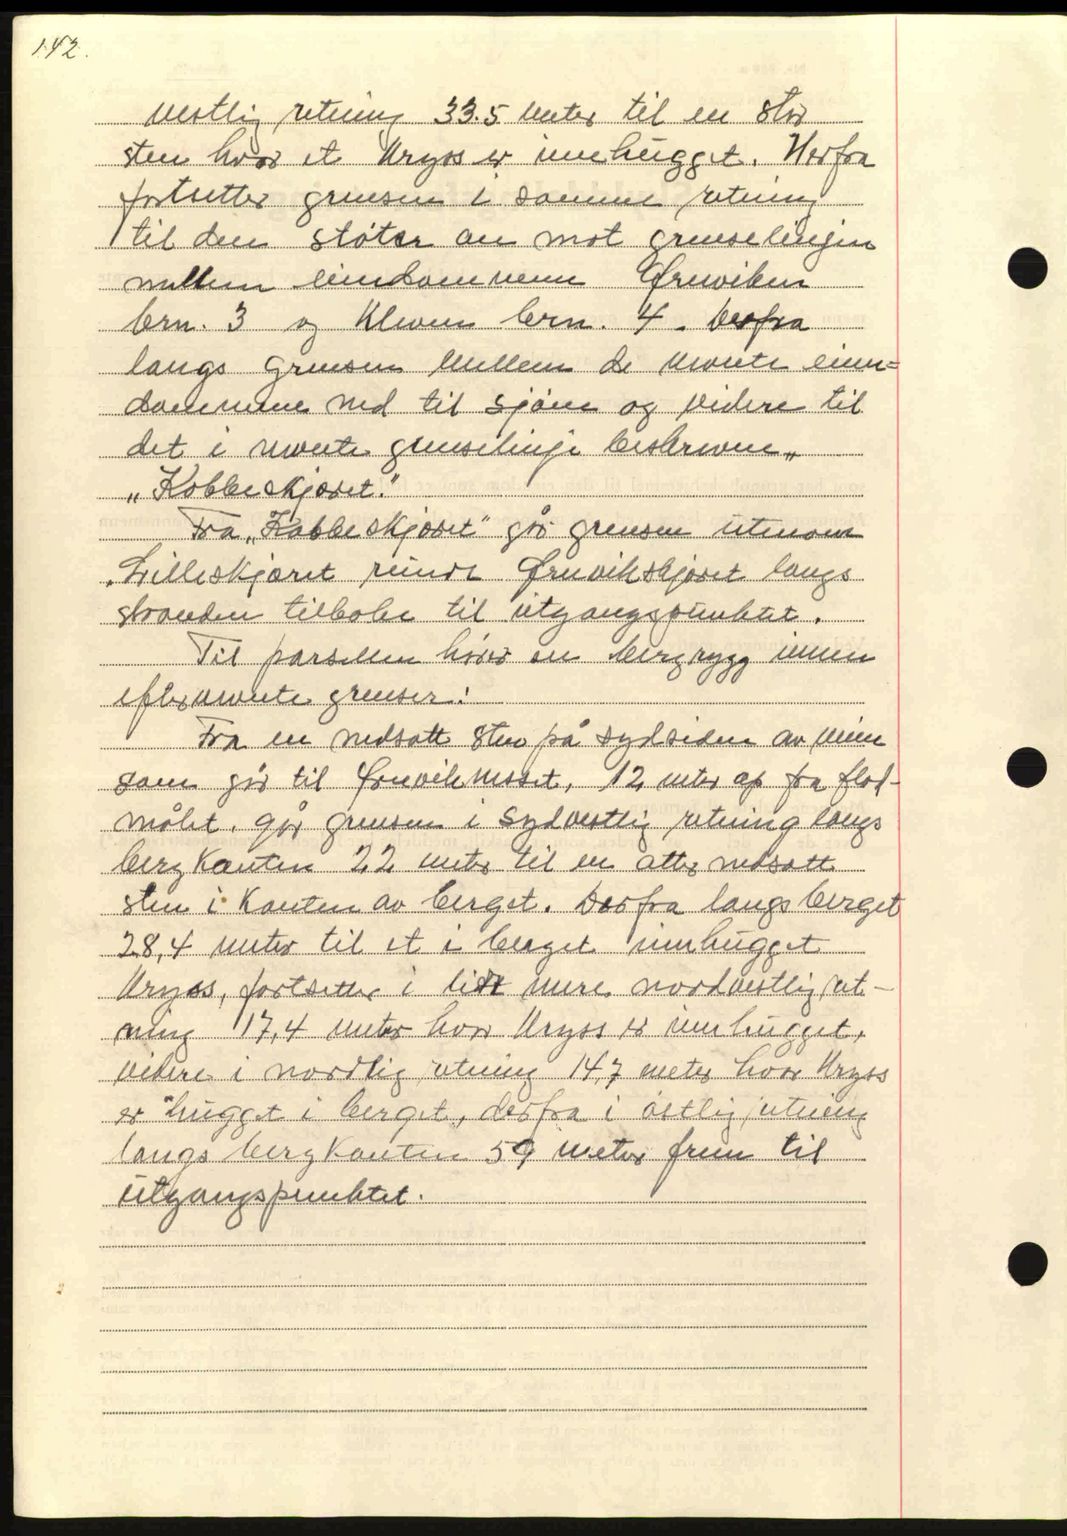 142.
vestlig retning 33.5 meter til en stor
sten hvor et kryss er innhugget. Herfra
fortsetter grensen i samme retning
til den støter an mot grenselinjen
mellem eiendommene Ørneviken
brn. 3 og Kleven brn. 4. Derfra
langs grensen mellem de nevnte eien=
dommene ned til sjøen og videre til
det i nevnte grenselinje beskrevne„
„Kobbeskjæret."
Fra „Kobbeskjæret" går grensen utenom
Lilleskjæret rundt Ørnvikskjæret langs
stranden tilbake til utgangspunktet.
Til parsellen hører en bergrygg innen
efternevnte grenser:
Fra en nedsatt sten på sydsiden av veien
som går til Ørnvikneset, 12 meter op fra flod-
målet, går grensen i sydvestlig retning langs
bergkanten 22 meter til en atter nedsatt
sten i kanten av berget. Derfra langs berget
28,4 meter til et i berget innhugget
kryss, fortsetter i litt mere nordvestlig ret-
ning 17,4 meter hvor kryss er innhugget,
videre i nordlig retning 14,7 meter hvor kryss
er hugget i berget, derfra i østlig retning
langs bergkanten 59 meter frem til
utgangspunktet.